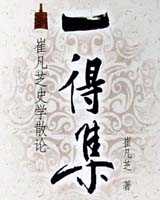 一得集
崔凡芝史学散论
崔凡芝 著